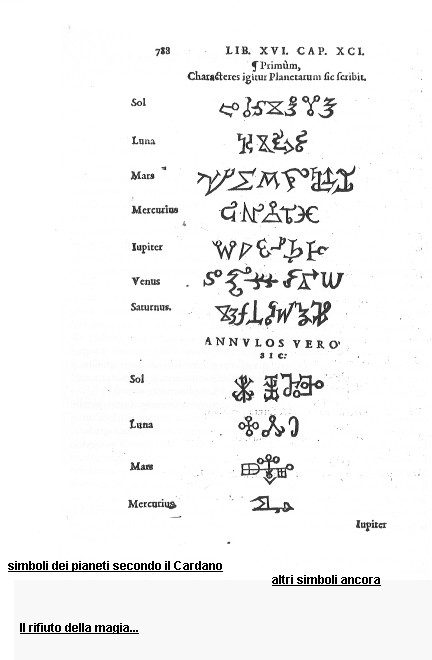 788 LIB. XVI. CAP. XCI.
¶ Primùm,
Characteres igitur Planetarum sic scribit.
Sol
Luna
Mars
Mercurius
Iupiter
Venus
Saturnus.
ANNVLOS VERO
SIC:
Sol
Luna
Mars
Mercurius
Iupiter
simboli dei pianeti secondo il Cardano
altri simboli ancora
Il rifiuto della magia...